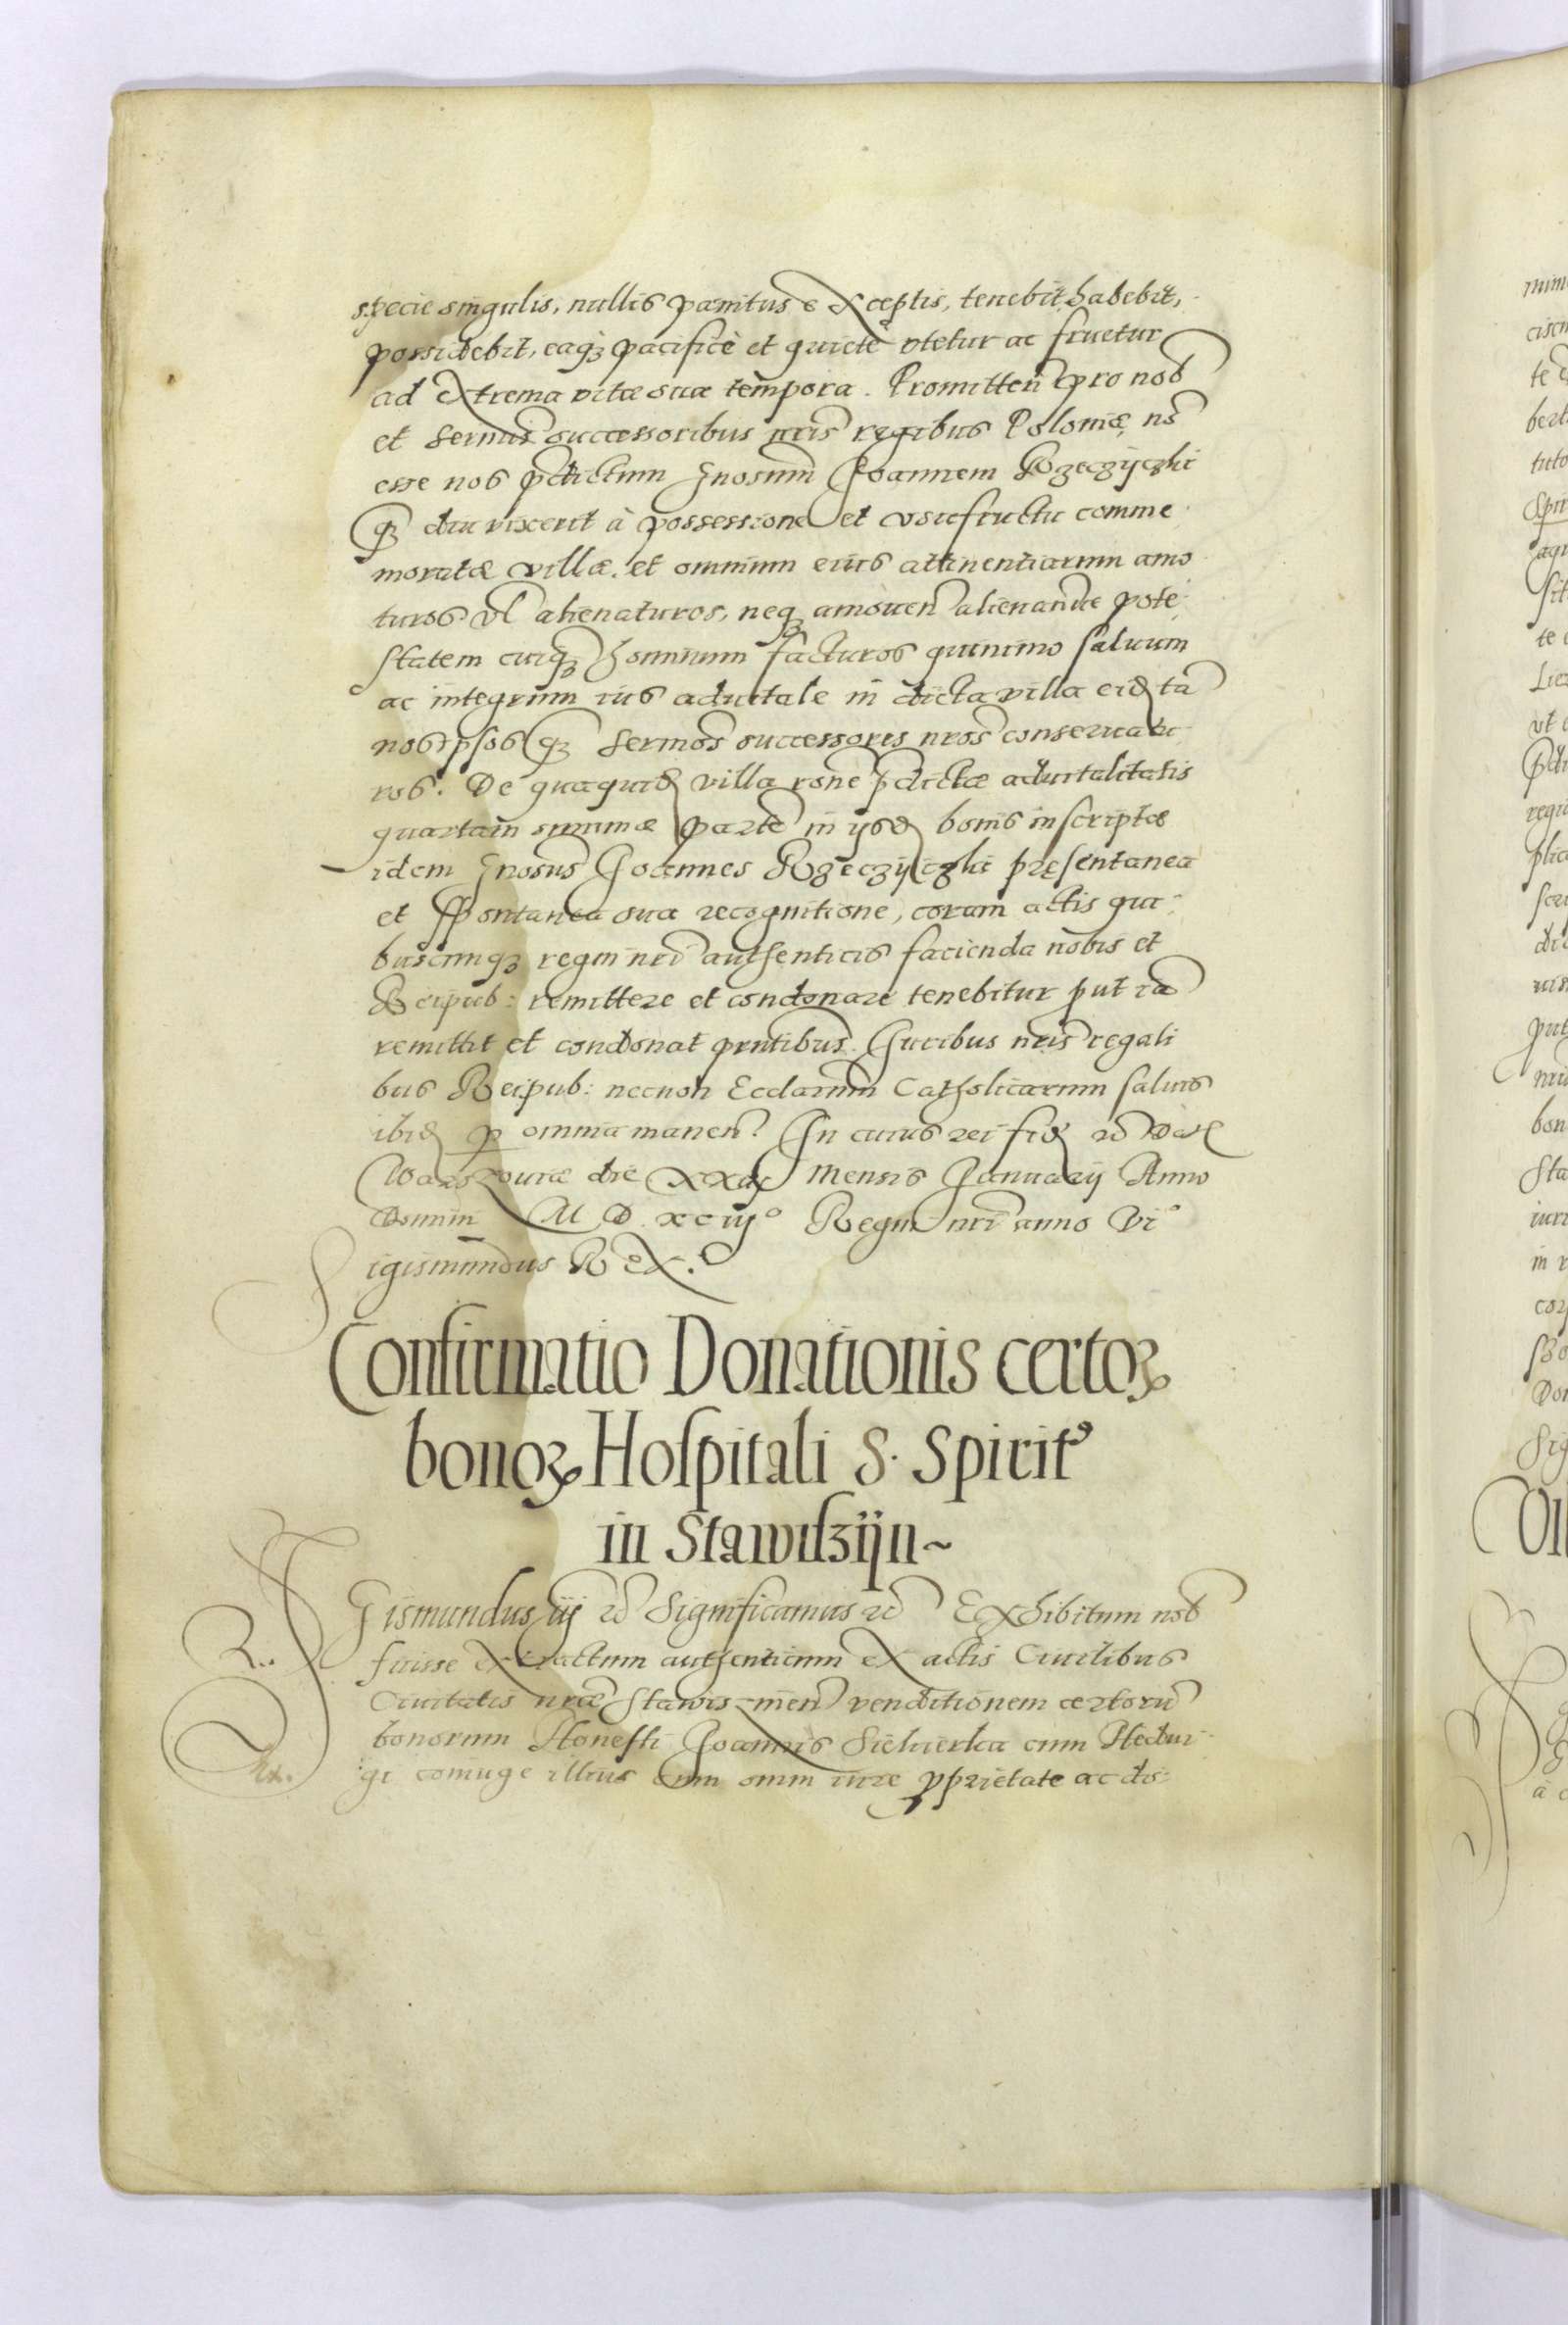 specie singulis, nullis pænitus exceptis, tenebit, habebit,
possidebit, eaqȝ pacificè et quietè vtetur ac fruetur
ad extrema vitæ suæ tempora. Promitten̄ pro nob̄
et serm̄is successoribus nr̄is regibus Poloniæ, nō
esse nos p̄dictum Gnosum̄ Joannem Rzeczyczki
qȝ diu vixerit à possessione et vsufructu comme
moratæ villæ, et omnium eius attinentiarum amo
turos vl̄ alienaturos, neqȝ amouen̄ alienandiue pote
statem cuiqȝ hominum facturos quinimo saluum
ac integrum ius aduitale in dicta villa eid̄ tā
nos ipsos qȝ serm̄os successores nr̄os conseruatu
ros. De quaquid̄ villa ron̄e p̄dictæ aduitalitatis
quartam summæ partē in ijsd̄ bonis inscriptæ
idem Gnosus̄ Joannes Rzeczyczki præsentanea
et spontanea sua recognitione, coram actis qui
buscunqȝ regni nr̄i authenticis facienda nobis et
Reipub: remittere et condonare tenebitur p̄ut iā
remittit et condonat pn̄tibus. Juribus nr̄is regali
bus Reipub: necnon Eccl̄arum Catholicarum saluis
ibid̄ p̱ omnia manen̄. In cuius rei fid̄ &c̄ Dat̄
Warszouiæ die XXIX Mensis January Anno
Domini M D XCIIJ° Regni nr̄i anno VI°
Sigismundus Rex.
Confirmatio Donationis certoꝝ
bonoꝝ Hospitali S. Spirit⁹
in Stawiszijn~
Sigismundus iij &c̄ Significamus &c̄ Exhibitum nob̄
fuisse extractum authenticum ex actis Ciuilibus
Ciuitatis nr̄æ Stawis-men̄ venditionem certorū
bonorum Honesti Joannis Siekierka cum Heduui
gi coniuge illius cum omni iure ꝓprietate ac do-